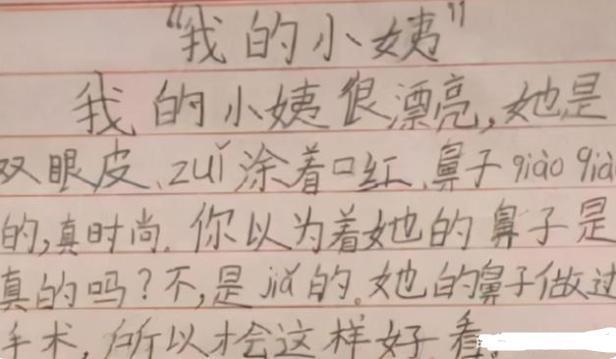 “我的小姨”
我的小姨很漂亮,她是
双眼皮、zuǐ涂着口红、鼻子qiào qià
的,真时尚.你以为着她的鼻子是
真的吗?不,是jiǎ的。她的鼻子做过
手术,所以才会这样好看。